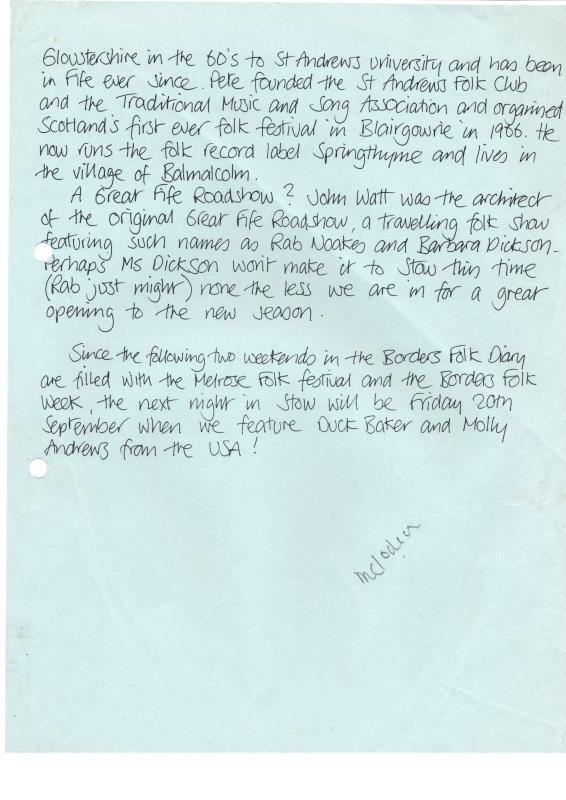 Gloustershire in the 60's to St Andrews University and has been
in Fife ever since. Pete founded the St Andrews Folk Club
and the Traditional Music and Song Association and organised
Scotland's first ever folk festival in Blairgowrie in 1966. He
now runs the folk record label Springthyme and lives in
the village of Balmalcolm.
A Great Fife Roadshow? John Watt was the architect
of the original Great Fife Roadshow, a travelling folk show
featuring such names as Rab Noakes and Barbara Dickson.
Perhaps Ms Dickson won't make it to Stow this time
(Rab just might) none the less we are in for a great
opening to the new season.
Since the following two weekends in the Borders Folk Diary
are filled with the Melrose Folk festival and the Borders Folk
Week, the next night in Stow will be Friday 20th
September when we feature Duck Baker and Molly
Andrews from the USA!
melodeon